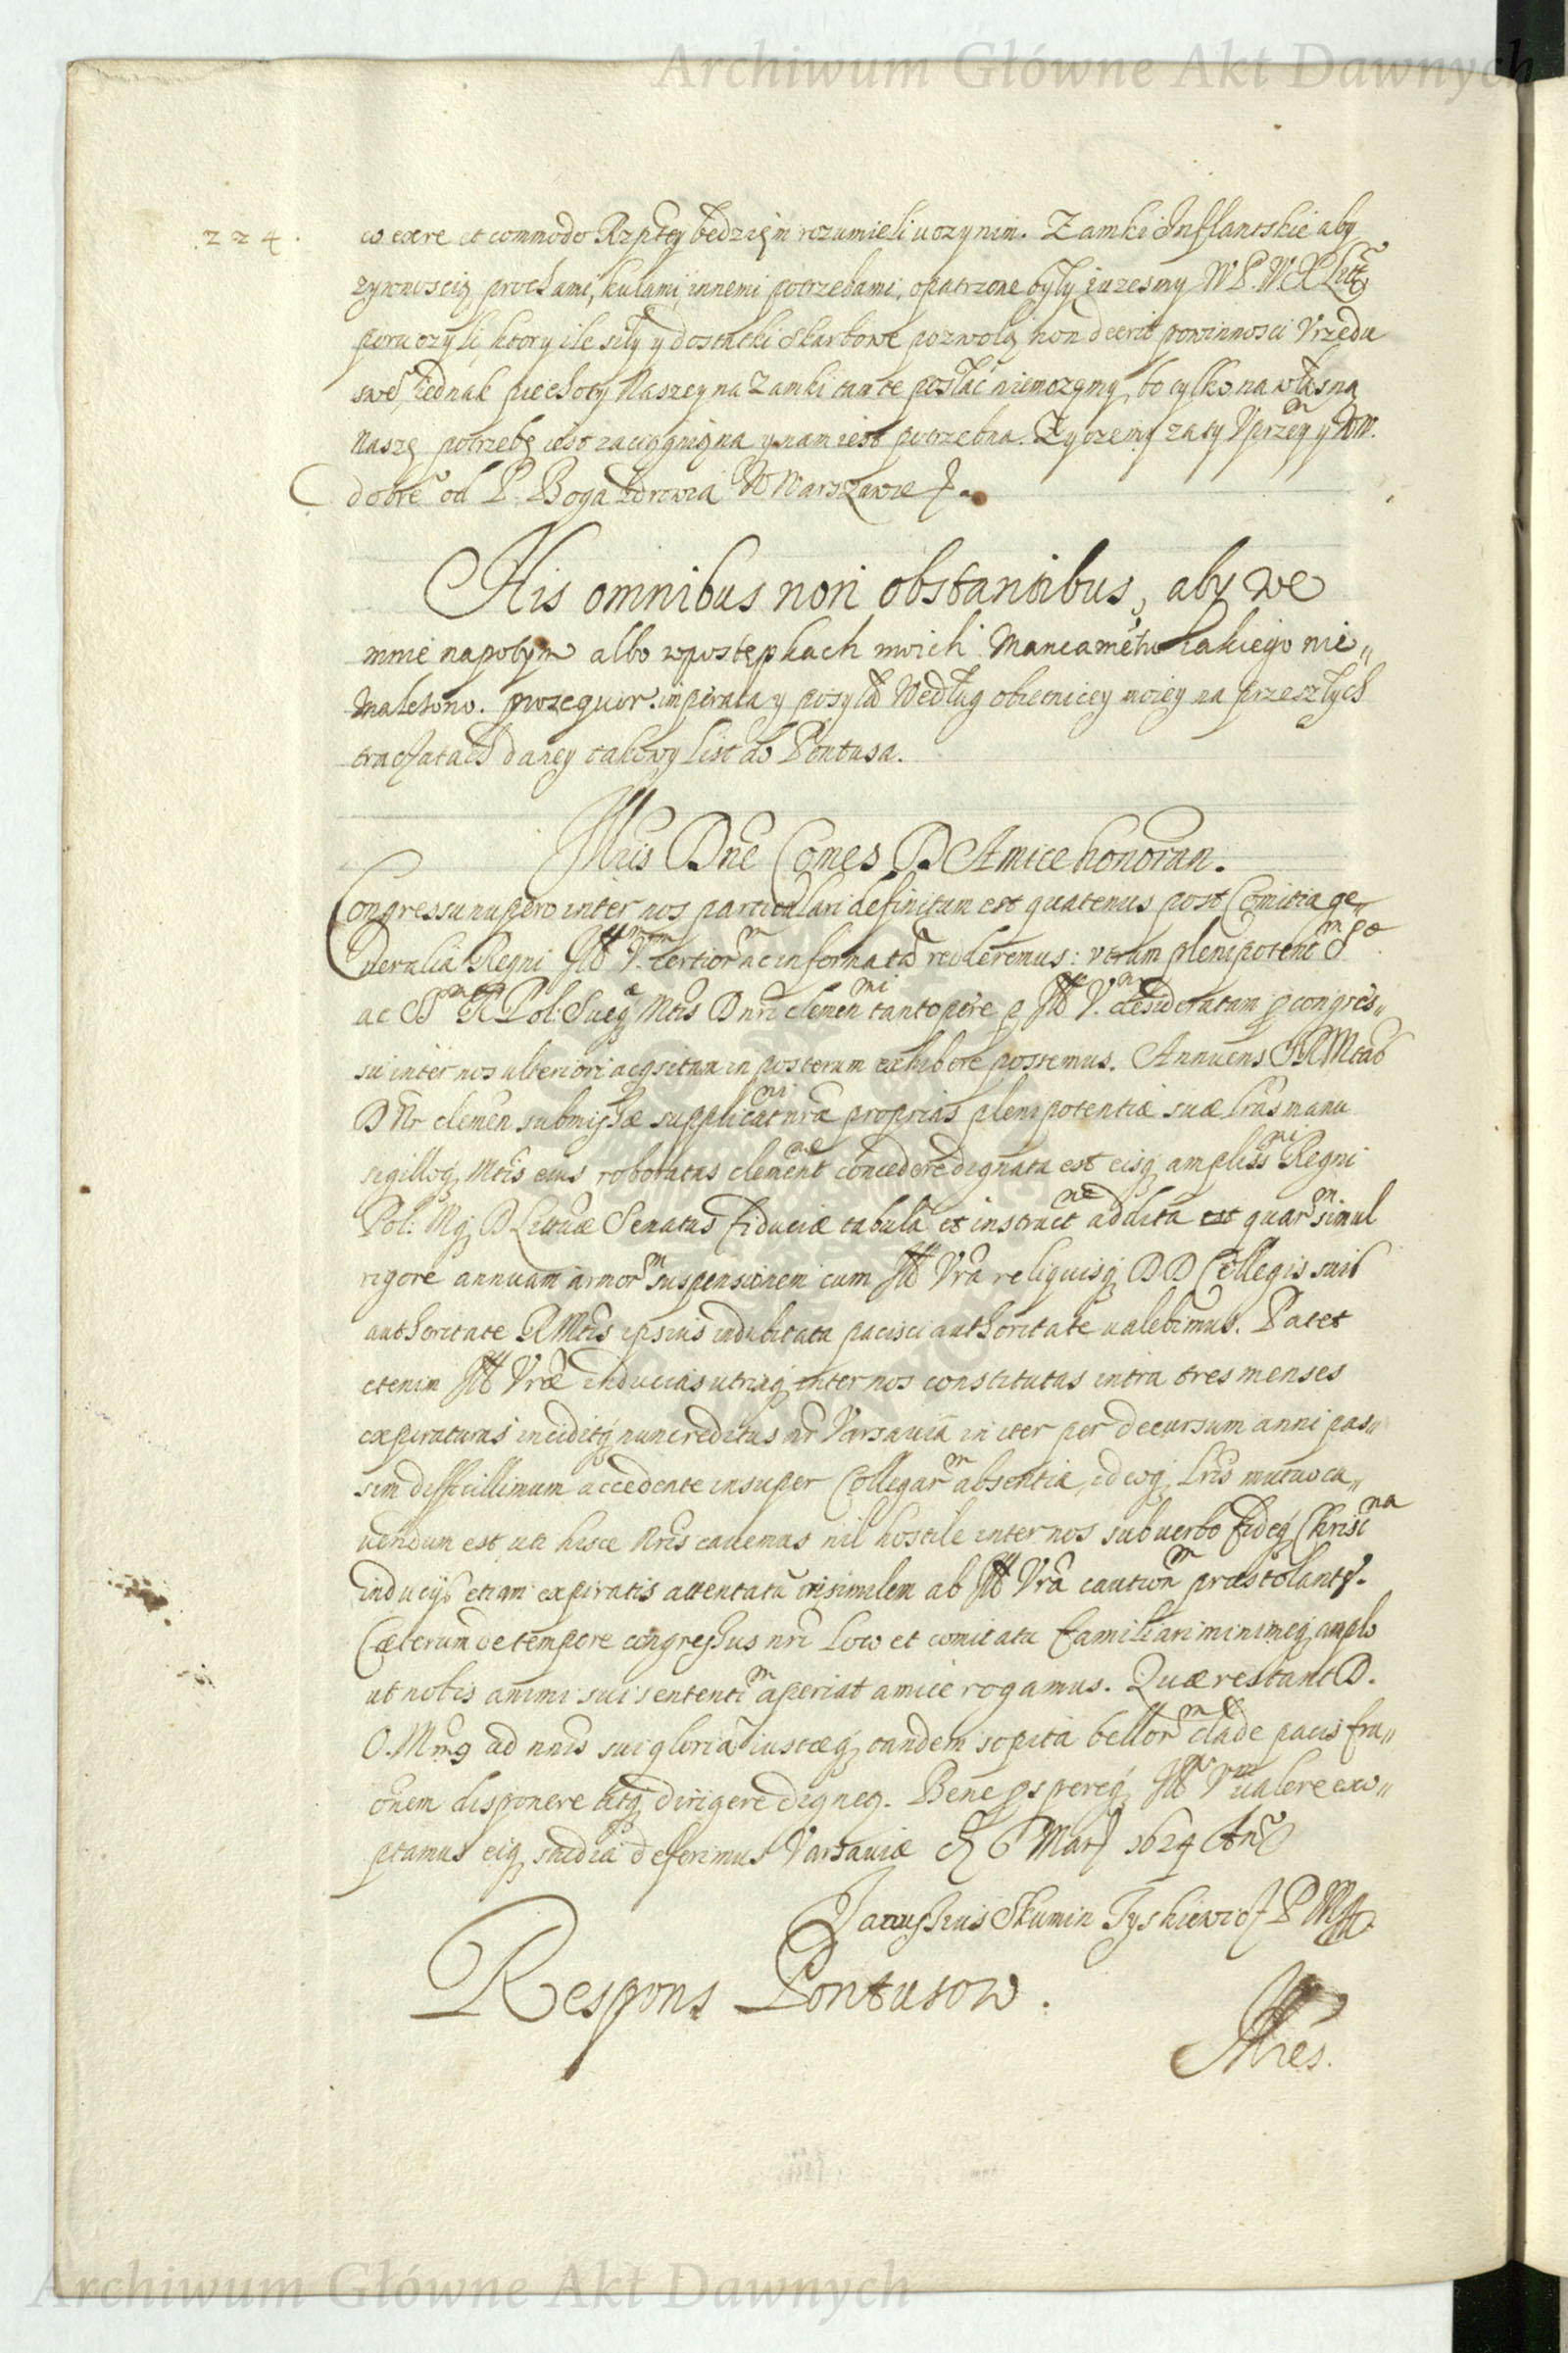 Archiwum Główne Akt Dawnych
224.
co ex re et commodo Rzptey będzięm rozumieli uczynim. Zamki Inflantskie aby
zywnoscią prochami, kulami, innemi potrzebami, opatrzone były, iuzesmy W P. W X Litt
poruczyli ktory ile siły y dostatki skarbowe pozwolą non deerit powinnosci Vrzędu
swe iednak piechoty Naszey na Zamki tamte posłać niemozemy, bo tylko na własną
Naszę potrzebę iest zaciągniona y nam iest potrzebna. Zyczemy zaty Vprzey y WW.
dobre od P. Boga zdrowia W Warszawie
His omnibus non obstantibus, aby we
mnie napotym albo w postępkach moich Mancamentu takiego nie
nalesiono. prosequor imperata y posyła Według obietnicey moiey na przeszłych
tractatach daney takowy list do Pontusa.
Illris Dne Comes D Amice honoran.
Congressu nupero inter nos particulari definitum est quatenus post Comitia ge
neralia Regni Ill V. certior ac informata redderemus: utrum plenipotent S
ac S R Pol. Sueq Mtis D nri clemen tantopere p Ill V. desideratam p congres
su inter nos ulteriori acqsitam in posterum exhibere possemus. Annuens S R Mtas
D Nr clemen submissæ supplicat nræ proprias plenipotentiæ suæ lras manu
sigilloq Mtis eius roboratas clement concedere dignata est eisq ampliss Regni
Pol: Mq D Littuæ Senatus fiduciæ tabula et instruct addita est quar simul
rigore annuam armor suspensionem cum Ill Vra reliquisq D D Collegis suis
authoritate R Mtis ipsius indubitata pacisci authoritate valebimus. Patet
etenim Ill Vræ inducias utrinq inter nos constitutas intra tres menses
expiraturas inciditq nunc reditus nr Varsavia in iter per decursum anni pas
sim difficillimum accedente insuper Collegar absentia, idcoq Lris mutuo ca
vendum est, uti hisce Nris cavemus nil hostile inter nos sub verbo fideq Christ
inducijs etiam expiratis attentatu iri similem ab Ill Vra caution præstolant.
Cæterum de tempore congressus nri loco et comitatu familiari minimeq amplo
ut nobis animi sui sententi aperiat amice rogamus. Quæ restant D.
O. M ad nnis sui gloria iustæq tandem sopita bellor clade pacis fru
onem disponere atq dirigere digneq. Bene pspereq Ill V valere exo
ptamus eiq studia deferimus Varsaviæ 6 Marj 1624 Ano
Janussius Skumin Tyskiewicz P M
Respons Pontusow.
Illres.
Archiwum Główne Akt Dawnych